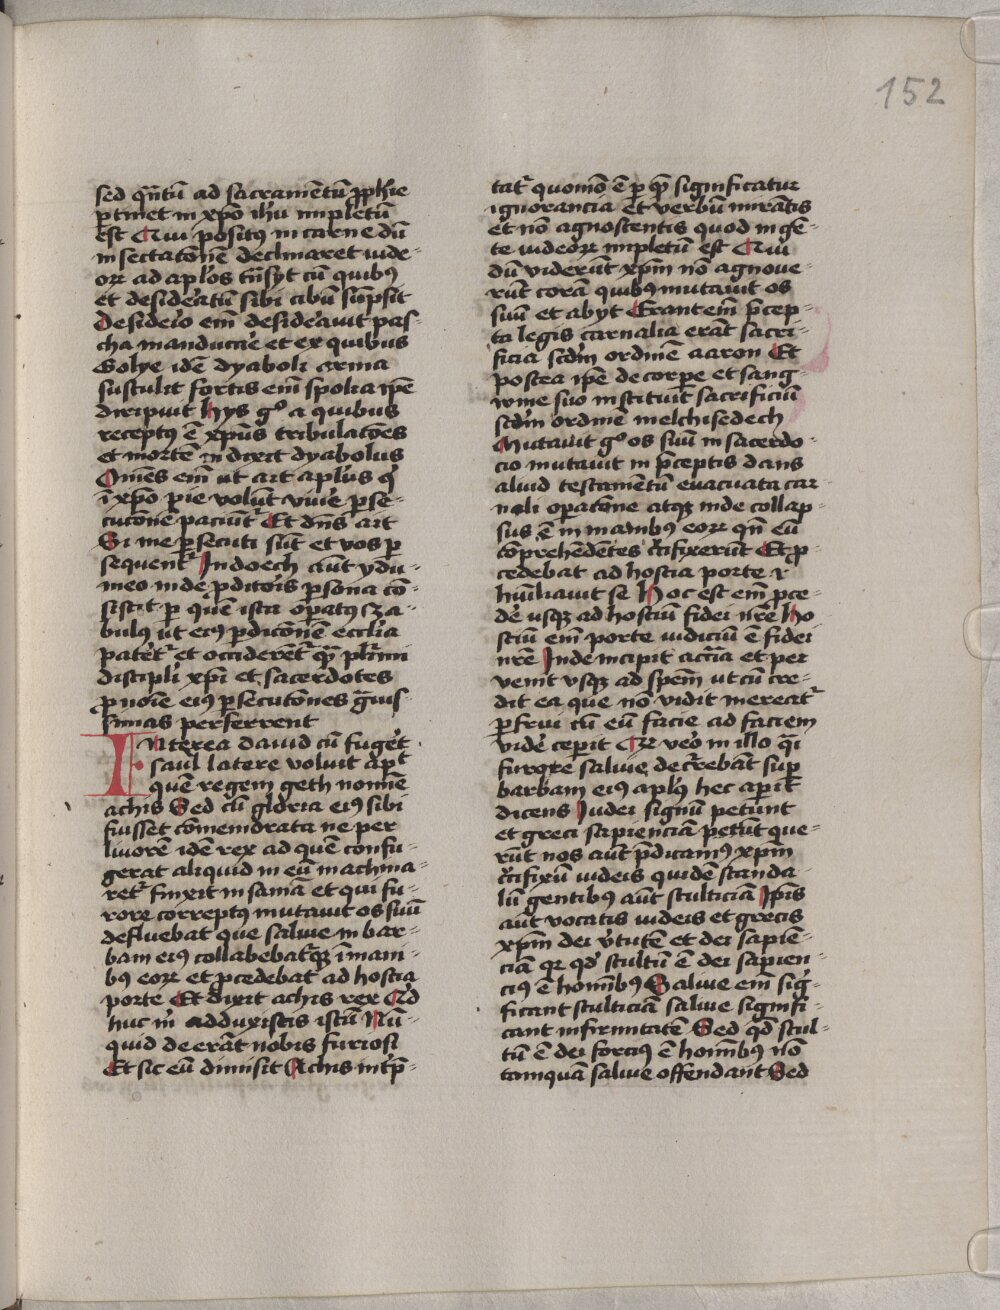 152
sed qn̄tū ad sacramētū ꝓph̄ie
ꝑtinet in xp̄o ih̄u impletū
est Qui positꝰ in carne dū
in sectatōne declinaret iude-
orꝝ ad apl̄os trāsijt cū quibꝰ
et desideratū sibi cibū sūpsit
Desidero em̄ desideauit pas-
cha manducare et ex quibus
Golye idē dyaboli arma
sustulit fortis em̄ spolia ip̄e
diripuit Hijs gͦ a quibus
receptꝰ ē xp̄us tribulatōes
et mortē indixit dyabolus
Om̄es em̄ ut ait apl̄us qͥ
ī xp̄o pie volūt viuē ꝑse-
cutōnē paciūt᷑ Et dn̄s ait
Si me ꝑsecuti sūt et vos ꝑ
sequent᷑ In doech aūt ydu-
meo iude ꝓditoris ꝑsona cō-
sistit ꝑ quē ista oꝑatꝰ ē za-
bulꝰ ut eiꝰ ꝑdicōnē eccl̄ia
patet᷑ et occideret᷑ qm̄ plurimi
discipl̄i xp̄i et sacerdotes
ꝓ noīe eiꝰ ꝑsecutōnes ḡuis-
simas perferrent
INterea dauid cū fuget
saul latere voluit apt
quē regem geth nomīe
achis Sed cū gloria eiꝰ sibi
fuisset cōmemorata ne per
liuorē idē rex ad quē confu-
gerat aliquid in eū machina-
ret᷑ finxit insaniā et qui fu-
rore correptꝰ mutauit os suū
defluebat que saliue in bar-
bam eiꝰ collabebat᷑qꝫ ī mani-
bꝰ eorꝝ et ꝓcedebat ad hostia
porte Et dixit achis rex Ad
huc m̄ adduxistis istū Nū-
quid deerāt nobis furiosi
Et sic eū dimisit Achis int̄p̄-
tat᷑ quomō ē ꝑ qm̄ significatur
ignorancia et verbū mirātis
et nō agnoscentis quod in gē-
te iudeorꝝ impletū est Qui
dū viderūt xp̄m nō agnoue-
rūt corā quibꝰ mutauit os
suū et abijt Erant em̄ p̄cep-
ta legis carnalia erāt sacri-
ficia scd̄m ordinē aaron Et
postea ip̄e de corꝑe et sang-
wine suo instituit sacrificiū
scd̄m ordinē melchisedech
Mutauit gͦ os suū in sacerdo-
cio mutauit in p̄ceptis dans
aliud testamētū euacuata car
nali oꝑacōne atqꝫ inde collap-
sus ē in manibꝰ eorꝝ qn̄ eū
cōprehēdētes c̄ifixerūt Et ꝓ-
cedebat ad hostia porte ⁊
hūiliauit se Hoc est em̄ ꝓce-
de᷑ vsqꝫ ad hostiū fidei nr̄e Ho
stiū em̄ porte iudiciū ē fidei
nr̄e Inde incipit ecc̄lia et per
venit vsqꝫ ad spēm ut cū cre-
dit ea que nō vidit mereat᷑
ꝑfrui cū eū facie ad faciem
vide᷑ ceperit Qꝛ vero in illo q̄i
furore saliue decurrebāt suꝑ
barbam eiꝰ aplꝰ hec aꝑit
dicens Iudei signū petunt
et greci sapienciā petūt que-
rūt nos aūt p̄dicamꝰ xp̄m
c̄ifixū iudeis quidē scanda-
lū gentibꝰ aūt stulticiā Ip̄is
aūt vocatis iudeis et grecis
xp̄m dei v̓tutē et dei sapiē-
ciā qꝛ qd̓ stultū ē dei sapien-
ciꝰ ē hoīnibꝰ Saliue em̄ sig-
ficant stulticiā saliue signifi-
cant infirmitatē Sed qd̓ stul-
tū ē dei forciꝰ ē homībꝰ nō
tamquā saliue offendant Sed